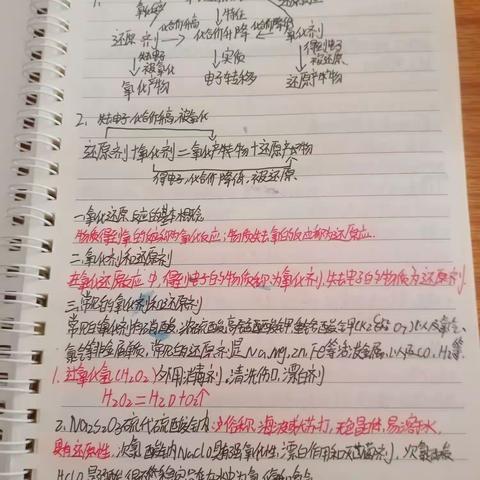 1.
氧化性 特征
还原剂 → 化合价升降 ← 氧化剂
失去电子 被氧化 实质 得到电子 被还原
氧化产物 电子转移 还原产物
2. 失电子,化合价升高,被氧化
还原剂+氧化剂=氧化产物+还原产物
得电子,化合价降低,被还原
一.氧化还原反应的基本概念
物质得到氧的反应称为氧化反应;物质失去氧的反应称为还原反应.
二.氧化剂和还原剂
在氧化还原反应中,得到电子的物质称为氧化剂,失去电子的物质为还原剂.
三.常见的氧化剂和还原剂
常见的氧化剂有硝酸、浓硫酸、高锰酸钾、重铬酸钾(K₂Cr₂O₇)以及氧气、
氯气等.常见的还原剂是Na,Mg,Zn,Fe等活泼金属,以及CO、H₂等.
1.过氧化氢(H₂O₂)外用消毒剂、清洗伤口,漂白剂
H₂O₂=H₂O+O↑
2.Na₂S₂O₃硫代硫酸钠,俗称海波或大苏打,无色晶体,易溶于水,
具有还原性,次氯酸钠NaClO具有强氧化性,漂白作用和杀菌剂,次氯酸
HClO